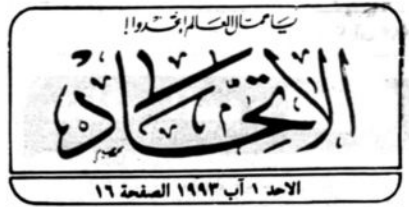 يا عمال العالم اتحدوا!
الاتحاد
الاحد ١ آب ١٩٩٣ الصفحة ١٦